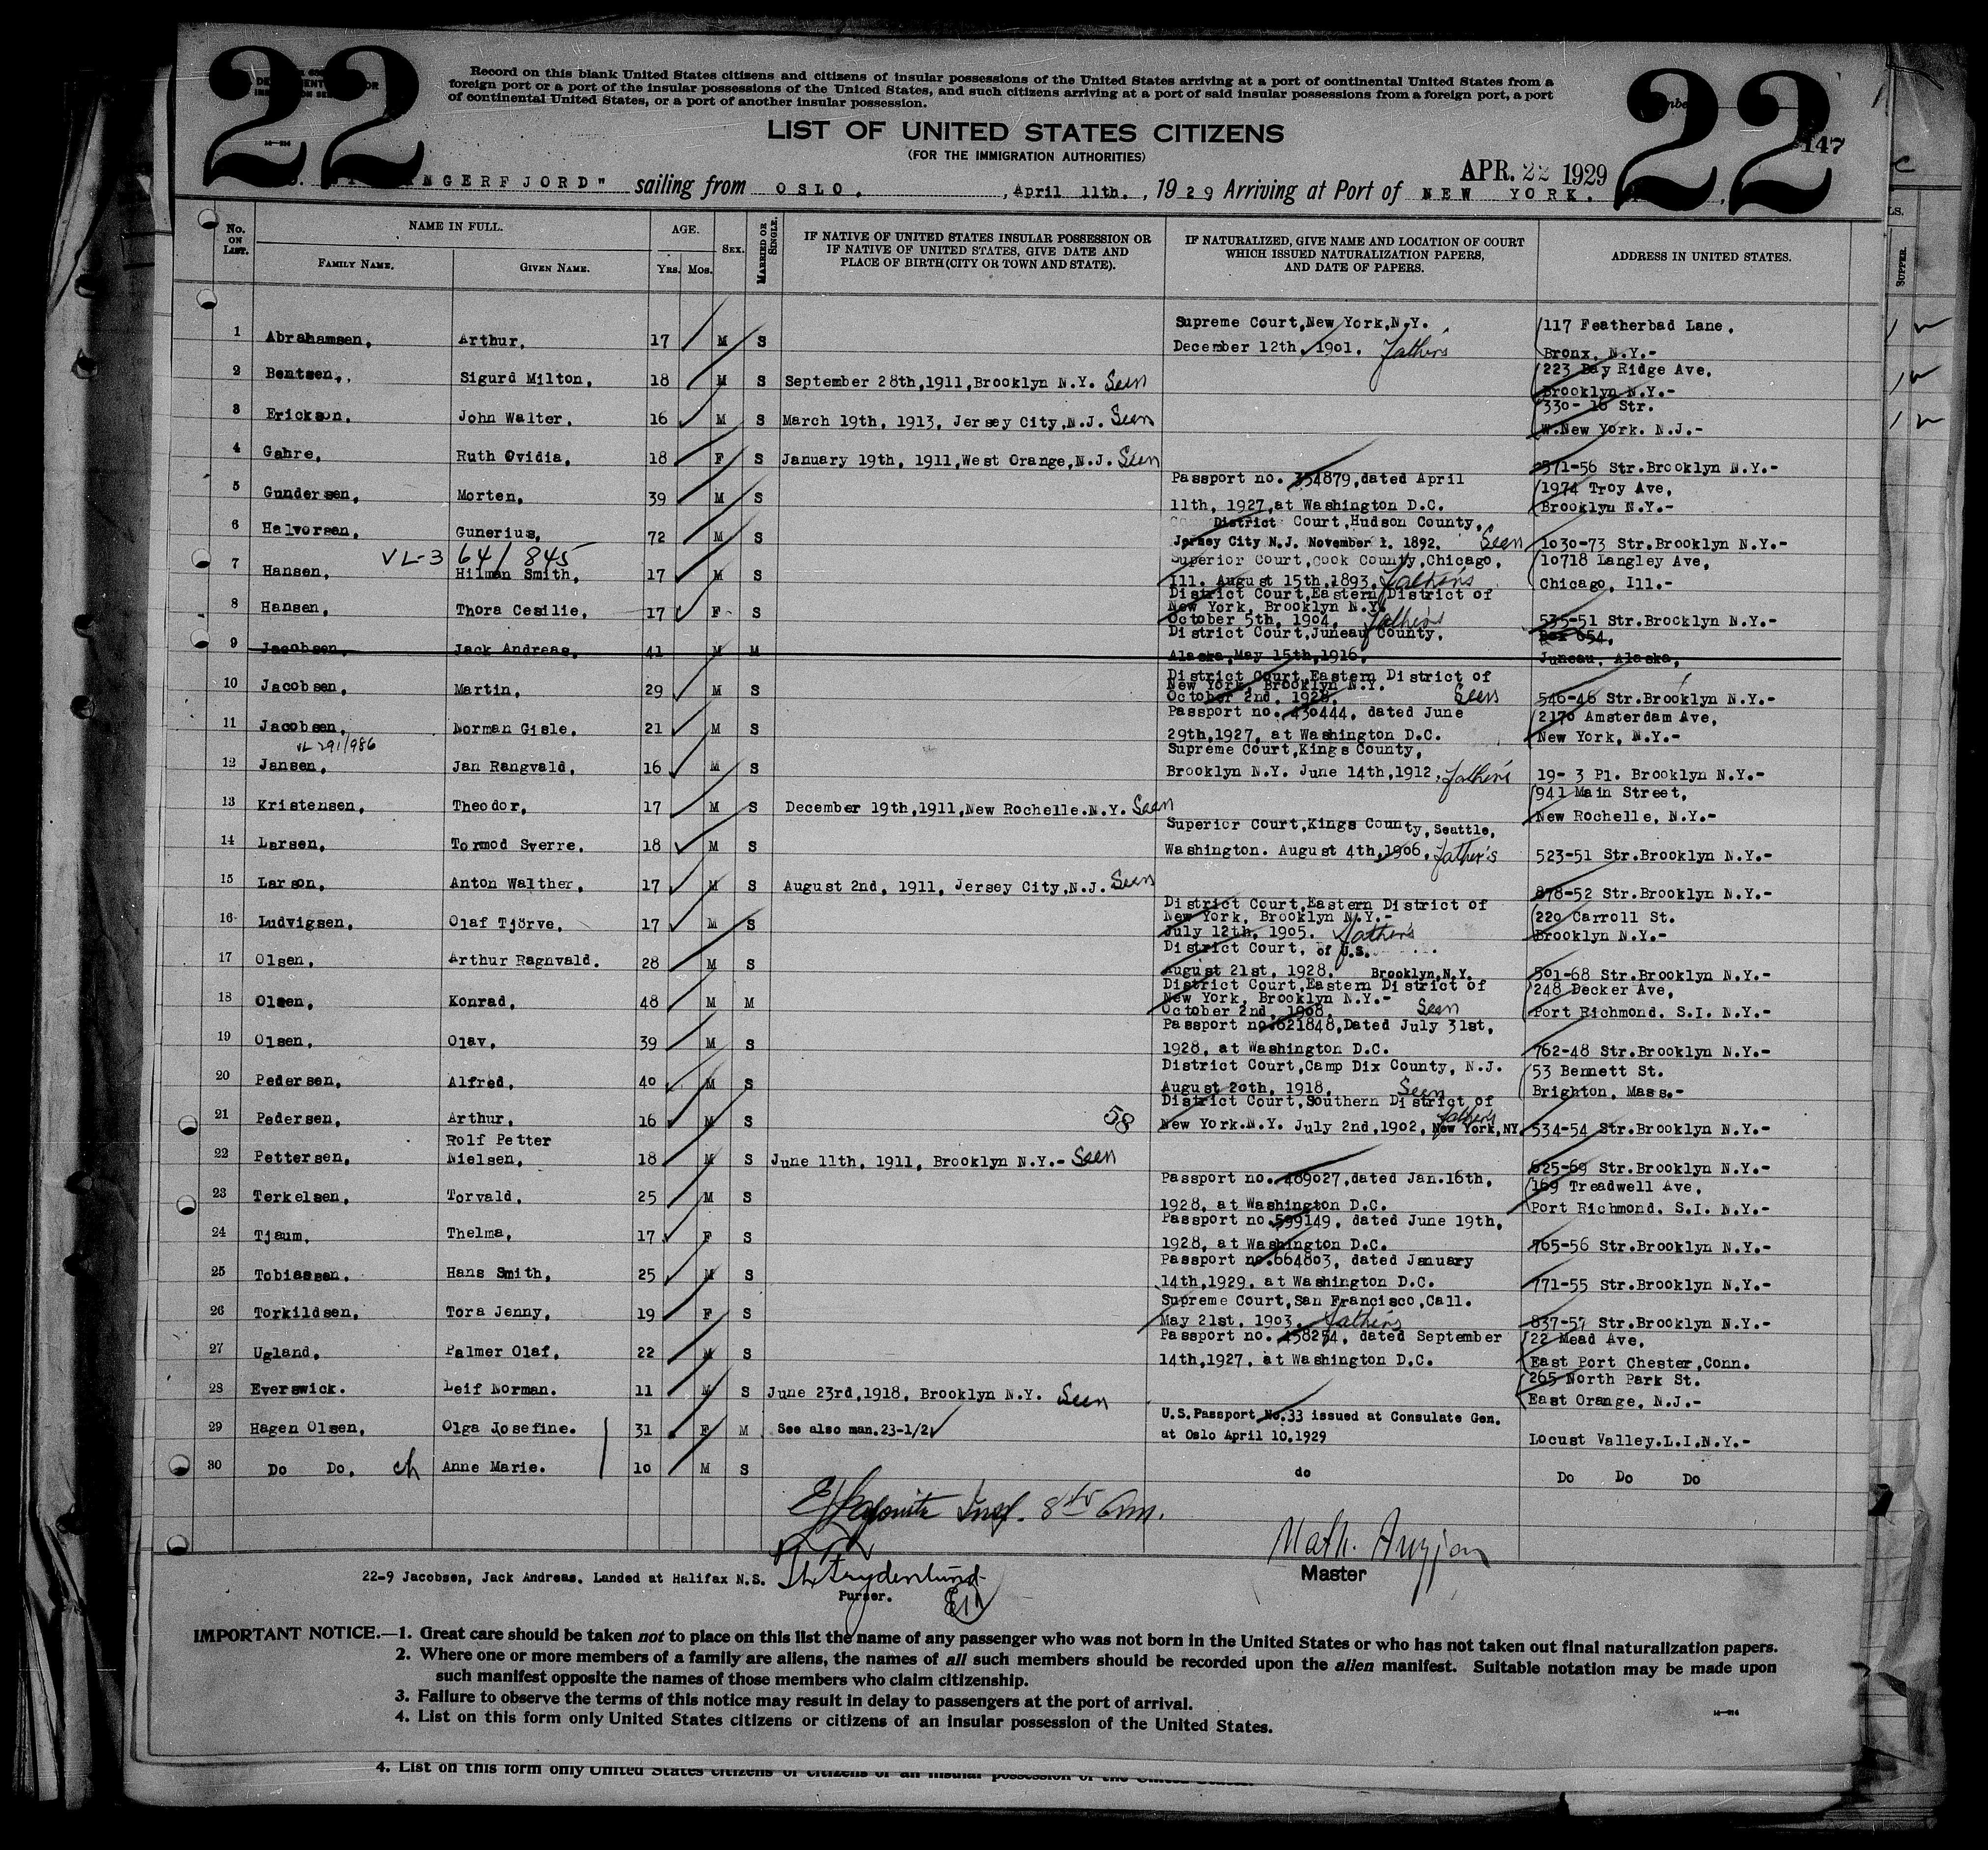 22
22
147
Record on this blank United States citizens and citizens of insular possessions of the United States arriving at a port of continental United States from a
foreign port or a port of the insular possessions of the United States, and such citizens arriving at a port of said insular possessions from a foreign port, a port
of continental United States, or a port of another insular possession.
LIST OF UNITED STATES CITIZENS
(FOR THE IMMIGRATION AUTHORITIES)
NGERFJORD" sailing from OSLO. , April 11th. , 1929 Arriving at Port of NEW YORK.
APR. 22 1929
No. ON LIST.
NAME IN FULL.
FAMILY NAME.
GIVEN NAME.
AGE.
YRS. MOS.
SEX.
MARRIED OR SINGLE.
IF NATIVE OF UNITED STATES INSULAR POSSESSION OR
IF NATIVE OF UNITED STATES, GIVE DATE AND
PLACE OF BIRTH (CITY OR TOWN AND STATE).
IF NATURALIZED, GIVE NAME AND LOCATION OF COURT
WHICH ISSUED NATURALIZATION PAPERS,
AND DATE OF PAPERS.
ADDRESS IN UNITED STATES.
SUPPER.
1 Abrahamsen, Arthur, 17 M S Supreme Court,New York,N.Y. (117 Featherbad Lane,
December 12th, 1901. father's Bronx, N.Y.-
2 Bentsen,, Sigurd Milton, 18 M S September 28th,1911,Brooklyn N.Y. Seen (223 Bay Ridge Ave,
Brooklyn N.Y.-
3 Erickson, John Walter, 16 M S March 19th, 1913, Jersey City,N.J. Seen (330- 16 Str.
W.New York. N.J.-
4 Gahre, Ruth Ovidia, 18 F S January 19th, 1911,West Orange,N.J. Seen 571-56 Str.Brooklyn N.Y.-
5 Gundersen, Morten, 39 M S Passport no. 354879,dated April (1974 Troy Ave,
11th, 1927,at Washington D.C. Brooklyn N.Y.-
6 Halvorsen, Gunerius, 72 M S District Court,Hudson County,
Jersey City N.J. November 1. 1892. Seen 1030-73 Str.Brooklyn N.Y.-
VL-3 64/845
7 Hansen, Hilman Smith, 17 M S Superior Court,Cook County,Chicago, (10718 Langley Ave,
Ill. August 15th,1893. father's Chicago, Ill.-
8 Hansen, Thora Cesilie, 17 F S District Court,Eastern District of
New York, Brooklyn N.Y.
October 5th, 1904. father's 535-51 Str.Brooklyn N.Y.-
9 Jacobsen, Jack Andreas, 41 M M District Court,Juneau County, Box 654,
Alaska,May 15th,1916, Juneau, Alaska,
10 Jacobsen, Martin, 29 M S District Court,Eastern District of
New York, Brooklyn N.Y.
October 2nd, 1928. Seen 546-46 Str.Brooklyn N.Y.-
11 Jacobsen, Norman Gisle, 21 M S Passport no. 430444, dated June (2170 Amsterdam Ave,
29th,1927, at Washington D.C. New York, N.Y.-
VL 291/986
12 Jansen, Jan Rangvald, 16 M S Supreme Court,Kings County,
Brooklyn N.Y. June 14th,1912, father's 19- 3 Pl. Brooklyn N.Y.-
13 Kristensen, Theodor, 17 M S December 19th,1911,New Rochelle.N.Y. Seen (941 Main Street,
New Rochelle, N.Y.-
14 Larsen, Tormod Sverre, 18 M S Superior Court,Kings County, Seattle,
Washington. August 4th,1906, father's 523-51 Str.Brooklyn N.Y.-
15 Larson, Anton Walther, 17 M S August 2nd, 1911, Jersey City,N.J. Seen 878-52 Str.Brooklyn N.Y.-
16 Ludvigsen, Olaf Tjörve, 17 M S District Court,Eastern District of
New York, Brooklyn N.Y.- (220 Carroll St.
July 12th, 1905. father's Brooklyn N.Y.-
17 Olsen, Arthur Ragnvald. 28 M S District Court, of U.S.
August 21st, 1928. Brooklyn,N.Y. 501-68 Str.Brooklyn N.Y.-
18 Olsen, Konrad, 48 M M District Court,Eastern District of (248 Decker Ave,
New York, Brooklyn N.Y.-
October 2nd, 1908. Seen Port Richmond. S.I. N.Y.-
19 Olsen, Olav, 39 M S Passport no.621848,Dated July 31st,
1928, at Washington D.C. 762-48 Str.Brooklyn N.Y.-
20 Pedersen, Alfred, 40 M S District Court,Camp Dix County, N.J. (53 Bennett St.
August 20th, 1918. Seen Brighton, Mass.-
21 Pedersen, Arthur, 16 M S 58 District Court,Southern District of
New York.N.Y. July 2nd,1902, father's New York,NY. 534-54 Str.Brooklyn N.Y.-
22 Pettersen, Rolf Petter
Nielsen, 18 M S June 11th, 1911, Brooklyn N.Y.- Seen 625-69 Str.Brooklyn N.Y.-
23 Terkelsen, Torvald, 25 M S Passport no. 489027,dated Jan.16th, (169 Treadwell Ave,
1928, at Washington D.C. Port Richmond. S.I. N.Y.-
24 Tjaum, Thelma, 17 F S Passport no.599149, dated June 19th,
1928, at Washington D.C. 765-56 Str.Brooklyn N.Y.-
25 Tobiassen, Hans Smith, 25 M S Passport no.664803, dated January
14th,1929, at Washington D.C. 771-55 Str.Brooklyn N.Y.-
26 Torkildsen, Tora Jenny, 19 F S Supreme Court,San Francisco,Call.
May 21st, 1903. father's 837-57 Str.Brooklyn N.Y.-
27 Ugland, Palmer Olaf, 22 M S Passport no. 458254, dated September (22 Mead Ave.
14th,1927, at Washington D.C. East Port Chester,Conn.
28 Everswick. Leif Norman. 11 M S June 23rd,1918, Brooklyn N.Y. Seen (265 North Park St.
East Orange, N.J.-
29 Hagen Olsen, Olga Josefine. 31 F M See also man.23-1/2 U.S.Passport No.33 issued at Consulate Gen.
at Oslo April 10.1929 Locust Valley.L.I.N.Y.-
30 Do Do. ch Anne Marie. 10 M S do Do Do Do
Master
22-9 Jacobsen, Jack Andreas. Landed at Halifax N.S.
Purser.
IMPORTANT NOTICE.—1. Great care should be taken not to place on this list the name of any passenger who was not born in the United States or who has not taken out final naturalization papers.
2. Where one or more members of a family are aliens, the names of all such members should be recorded upon the alien manifest. Suitable notation may be made upon
such manifest opposite the names of those members who claim citizenship.
3. Failure to observe the terms of this notice may result in delay to passengers at the port of arrival.
4. List on this form only United States citizens or citizens of an insular possession of the United States.
4. List on this form only United States citizens or citizens of an insular possession of the United States.